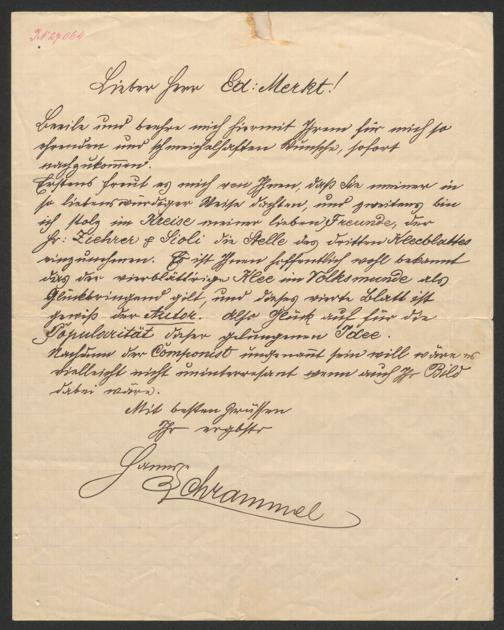 I.N 27.064
Lieber Herr Ed: Merkt!
Beeile und beehre mich hiermit Ihrem für mich so
ehrenden und schmeichelhaften Wunsche, sofort
nachzukommen.
Erstens freut es mich von Ihnen, daß Sie meiner in
so liebenswürdiger Weise dachten, und zweitens bin
ich stolz im Kreise meiner lieben Freunde, der
Hr: Ziehrer & Sioli die Stelle des dritten Kleeblattes
einzunehmen. Es ist Ihnen hoffentlich wohl bekannt
das der vierblättrige Klee im Volksmunde als
Glückbringend gilt, und dieses vierte Blatt ist
gewiß der Autor. Also Glück auf für die
Popularität dieser gelungenen Idee.
Nachdem der Componist ungenant sein will wäre es
vielleicht nicht uninterresant wenn auch Ihr Bild
dabei wäre.
Mit besten Grüssen
Ihr ergbste
Hanns
Schrammel